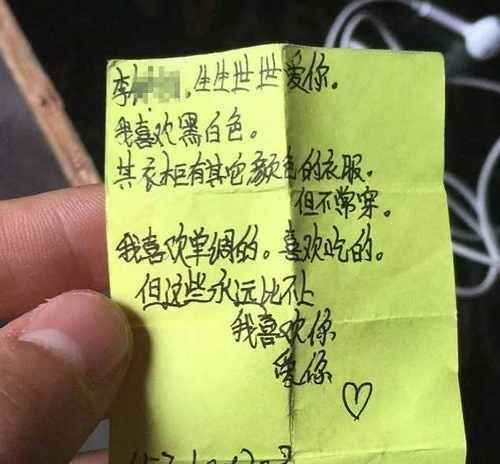 李 ，生生世世爱你。
我喜欢黑白色。
其衣柜有其它颜色的衣服。
但不常穿。
我喜欢单绸的。喜欢吃的。
但这些永远比不上
我喜欢你
爱你